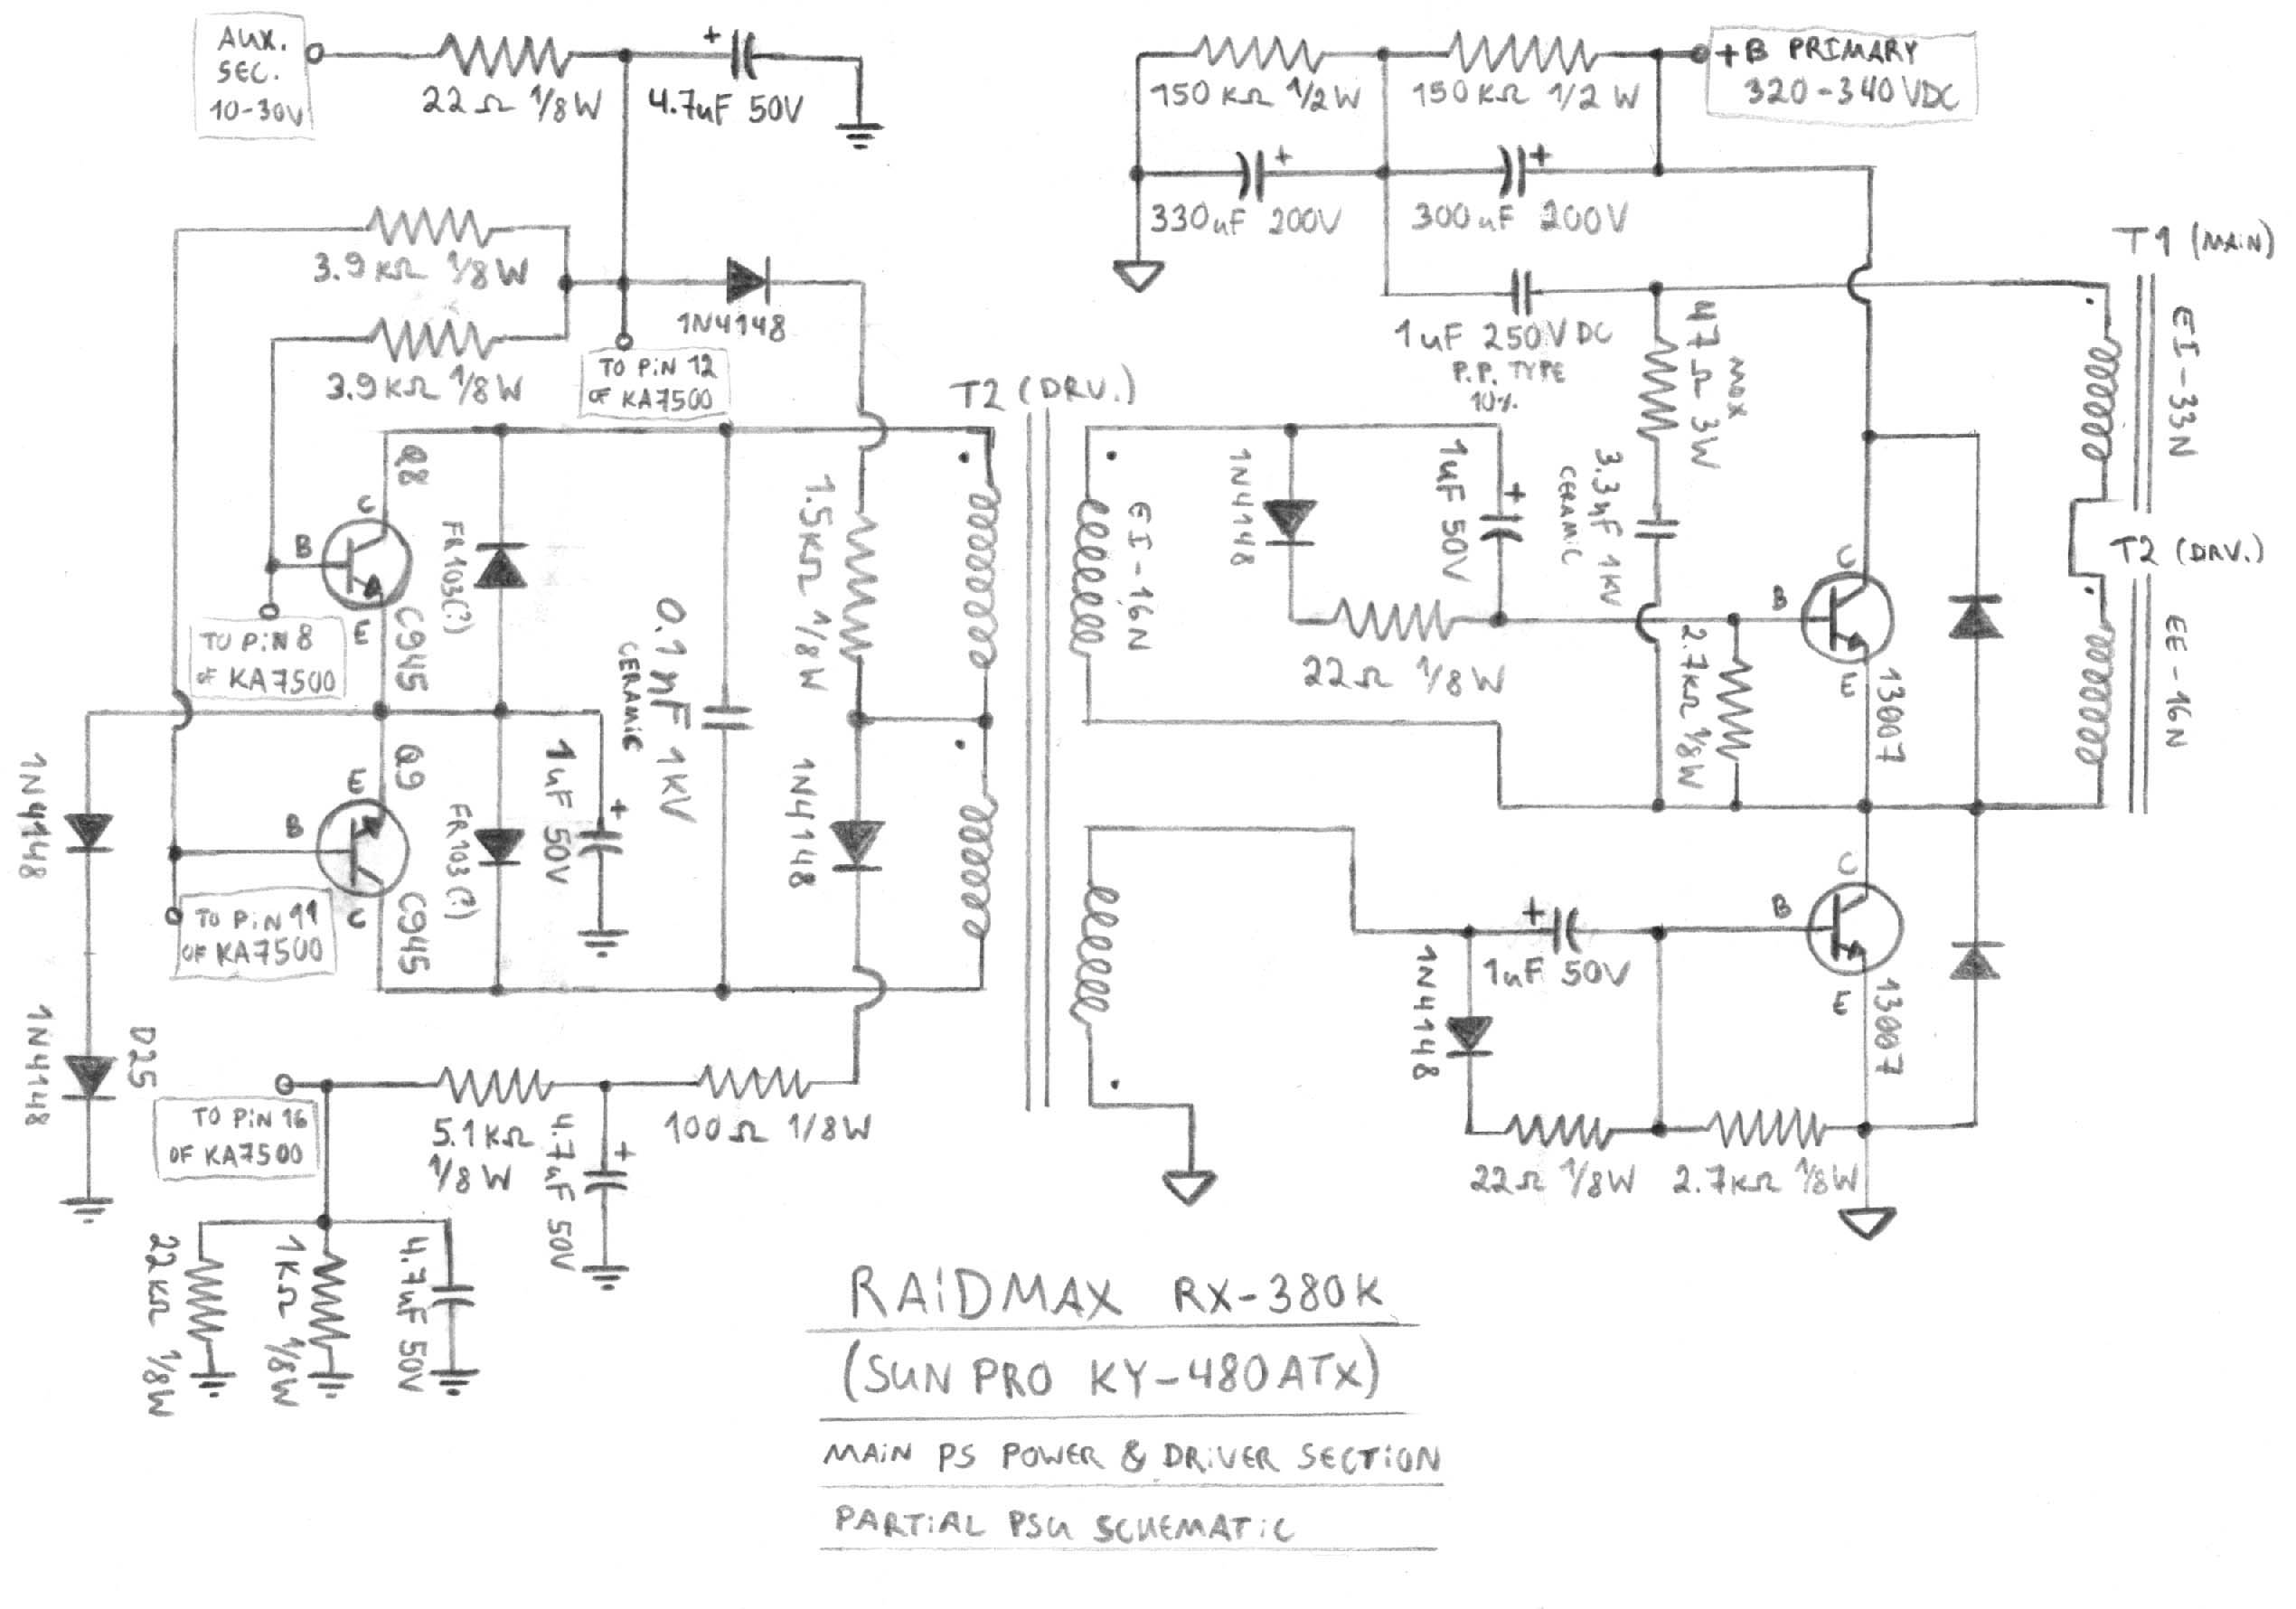 AUX.
SEC.
10-30V
22Ω 1/8W
+
4.7uF 50V
150KΩ 1/2W
150KΩ 1/2W
+B PRIMARY
320-340VDC
+
330uF 200V
+
300uF 200V
3.9KΩ 1/8W
3.9KΩ 1/8W
1N4148
TO PiN 12
OF KA7500
1uF 250VDC
P.P. TYPE
10%
47Ω 3W
MOX
3.3nF 1KV
CERAMiC
T1 (MAiN)
EI-33N
T2 (DRV.)
EE-16N
T2 (DRV.)
EI-16N
Q8
C
B
E
C945
FR103(?)
TO PiN 8
OF KA7500
0.1nF 1KV
CERAMiC
1.5KΩ 1/8W
1N4148
1uF 50V
+
22Ω 1/8W
2.7KΩ 1/8W
C
B
E
13007
1N4148
Q9
E
B
C
C945
FR103(?)
1uF 50V
+
1N4148
TO PiN 11
OF KA7500
1N4148
D25
TO PiN 16
OF KA7500
5.1KΩ
1/8W
4.7uF 50V
+
100Ω 1/8W
22KΩ 1/8W
1KΩ 1/8W
4.7uF 50V
+
1uF 50V
1N4148
C
B
E
13007
22Ω 1/8W
2.7KΩ 1/8W
RAiDMAX RX-380K
(SUN PRO KY-480ATX)
MAiN PS POWER & DRiVER SECTiON
PARTiAL PSU SCHEMATiC